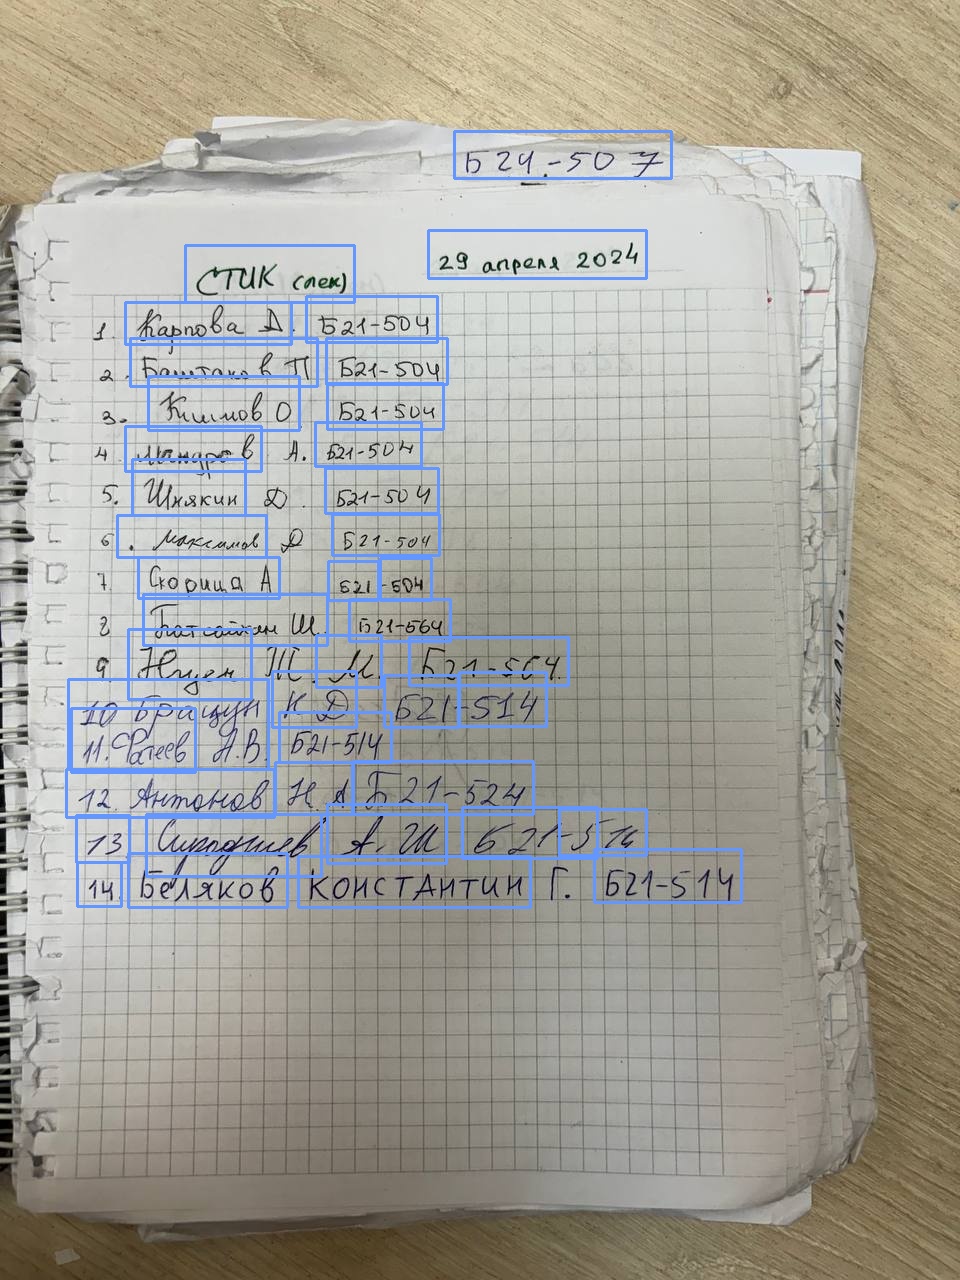 Б21-507
29 апреля 2024
СТИК (лек)
1. Карпова Д. Б21-504
2. Баштаков П Б21-504
3. Климов О Б21-504
4. А. Б21-504
5. Шнякин Д. Б21-504
6. Максимов Д Б21-504
7. Скорица А Б21-504
8 Ш. Б21-564
9. Нгуен Т. М. Б21-564
10 Брацун К Д Б21-514
11. Фатеев А.В. Б21-514
12. Антонов Н.А Б21-524
13. А. Ш Б21-514
14. Беляков КОНСТАНТИН Г. Б21-514